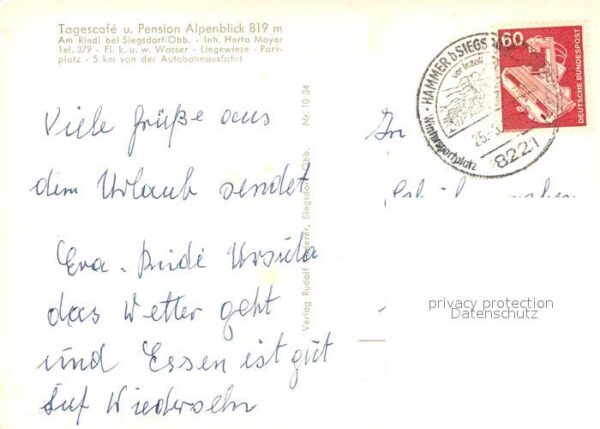 Tagescafé u. Pension Alpenblick 819 m
Am Riedl bei Siegsdorf/Obb. - Inh. Herta Mayer
Tel. 379 - Fl. k. u. w. Wasser - Liegewiese - Park-
platz - 5 km von der Autobahnausfahrt
Viele Grüße aus
dem Urlaub sendet
Eva. Ursula
das Wetter geht
und Essen ist gut
Auf Wiedersehn
Nr. 10 34
Verlag Rudolf Siegsdorf Obb.
HAMMER b SIEGS
Wintersportplatz
25. 3.
8221
60
DEUTSCHE BUNDESPOST
privacy protection
Datenschutz